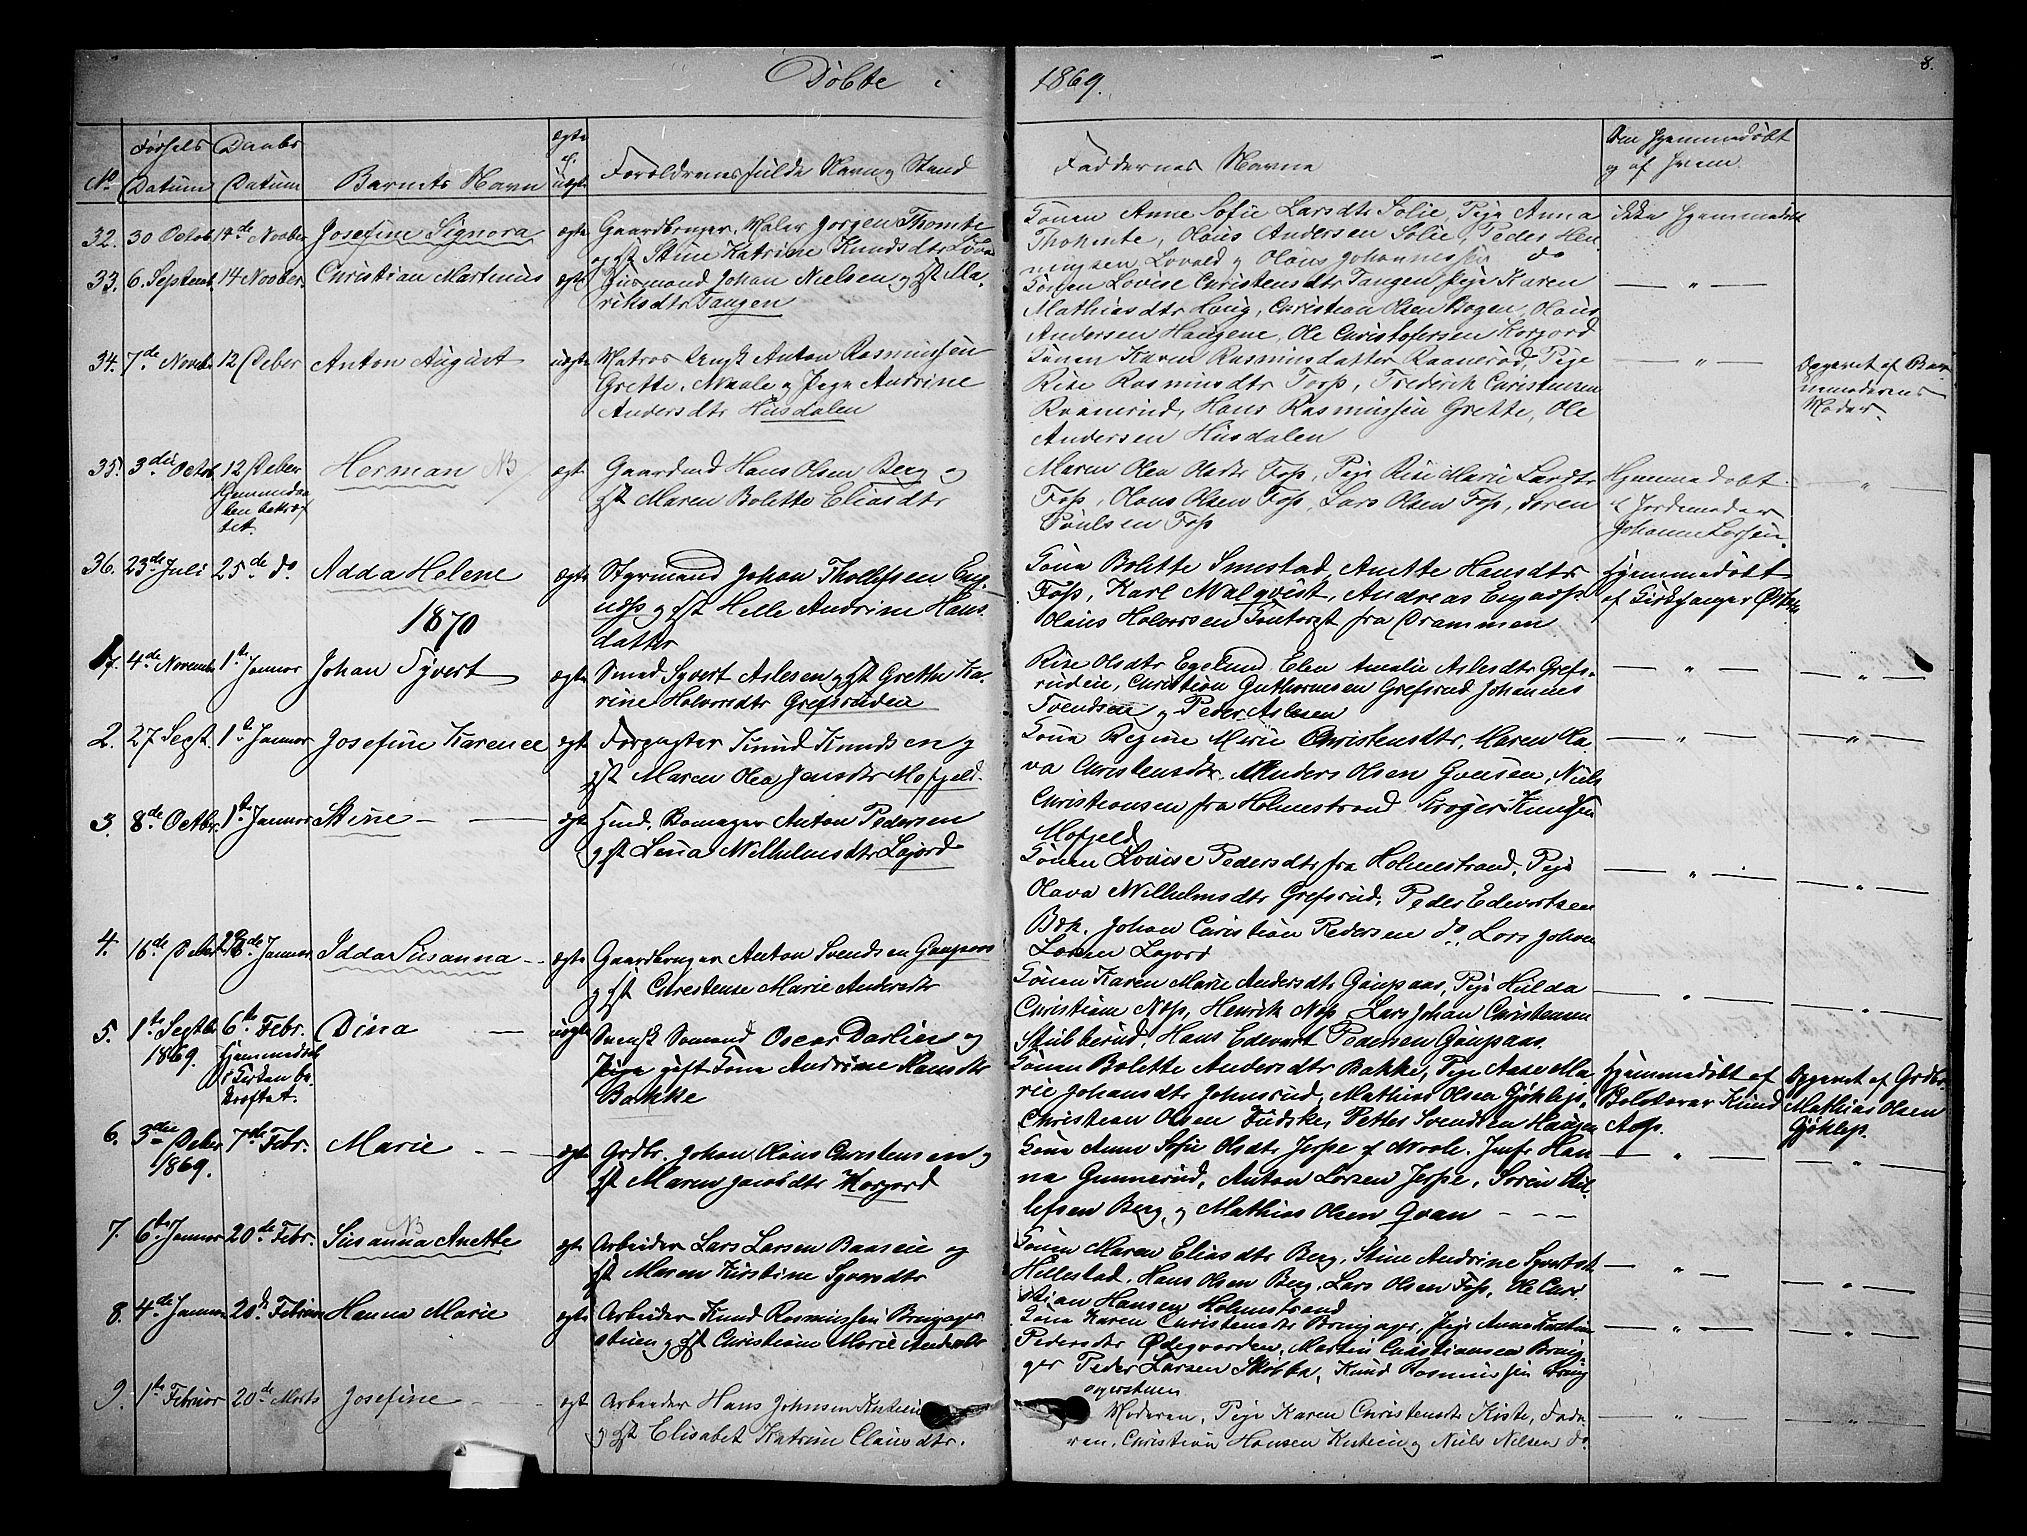 Døbte i 1869.
8.
No
Fødsels Datum
Daabs Datum
Barnets Navn
ægte el. uægte
Forældrenes fulde Navn og Stand
Faddernes Navne
Om Hjemmedøbt og af hvem.
32. 30 Octob. 14de Novber Josefine Signora ægte
Gaardbruger, Maler Jørgen Thomte
og Hst Stine Katrine Knudsdtr
Konen Anne Sofie Larsdtr Solie, Pige Anna
Thomte, Olaus Andersen Solie, Peder Hen
ningsen Lovald og Olaus Johannessen do
ikke hjemmedøbt
33. 6. Septemb. 14 Novber. Christian Martinus ægte
Husmand Johan Nielsen og Hst Ma-
riksdtr Tangen
Konen Lovise Christensdtr Tangen, Pige Karen
Mathiasdtr Haug, Christian Olsen Bogen, Olaus
Andersen Haugene, Ole Christofersen Korgord
— " —
34. 7de Novbr 12 Deber Anton August uægte
Matros Ungk Anton Rasmussen
Grette, Maale og Pige Andrine
Andersdtr Husdalen
Konen Karen Rasmusdatter Raanerud, Pige
Rise Rasmusdtr Torp, Frederik Christensen
Raanerud, Hans Rasmussen Grette, Ole
Andersen Husdalen
— " —
Opgivet af Bar
nemoderens
Moder.
35. 3die Octob. 12 Deber Herman NB ægte
Hjemmedaa
ben bekræf
tet.
Gaardmd Hans Olsen Berg og
Hst Maren Bolette Eliasdtr
Maren Olea Olsdtr Fos, Pige Rise Marie Larsdtr
Foss, Hans Olsen Foss, Lars Olsen Foss, Søren
Poulsen Foss
Hjemmedøbt
af Jordemoder
Johanne Larsen.
— " —
36. 23de Juli 25de do. Adda Helene ægte
Styrmand Johan Thollefsen Eng
og Hst Helle Andrine Hans
datter
Kona Bolette Smestad, Anette Hansdtr
Foss, Karl Malqvist, Andreas
Olaus Halvorsen fra Drammen
Hjemmedøbt
af Kirkesanger
1870
1. 4de Novemb. 1te Januar Johan Syvert ægte
Smed Syvert Aslesen og Hst Grethe Ka-
rine Halvorsdtr Grefsruden
Rise Olsdtr Egelund, Elen Amalie Aslesdtr Grefs-
ruden, Christian Guthormsen Grefsrud Johannes
Svendsen og Peder Aslesen
— " —
— " —
2. 27 Sept. 1te Januar Josefine Karence ægte
Forpagter Knud Knudsen og
Hst Maren Olea Jensdtr Mofjeld.
Kona Regine Marie Christensdtr, Maren Ha-
va Christensdtr, Anders Olsen Gousen, Niels
Christiansen fra Holmestrand Kroger Knudsen
Mofjeld
— " —
— " —
3. 8de Octbr. 1te Januar Stine — ægte
Husmd. Bomager Anton Pedersen
og Hst Lena Wilhelmsdtr Lajord
Konen Lovise Pedersdtr fra Holmestrand, Pige
Olava Wilhelmsdtr Grefsrud, Peder Edvartsen
Bok. Johan Christian Pedersen do. Lars Johan
Larsen Lajord
— " —
— " —
4. 16de Deber 28de Januar Idda Susanna ægte
Gaardbruger Anton Svendsen Gaupaas
og Hst Christense Marie Andersdtr
Konen Karen Marie Andersdtr Gaupaas, Pige Hulda
Christiane Næss, Henrik Næss, Lars Johan Christensen
Stubberud, Hans Edvart Pedersen Gaupaas.
— " —
— " —
5. 1te Septb. 1869. 6te Febr. Dina — uægte
Hjemmedaab
i Kirken be
kræftet.
Svensk Sømand Oscar Darlin og
Pige gift Kona Andrine Hansdtr
Bakke
Konen Bolette Andersdtr Bakke, Pige Aase Ma
rie Johansdtr Johnsrud, Mathias Olsen Gjøklep.
Christian Olsen Fudske, Petter Svendsen Haugen
Hjemmedøbt af
Knud
Aas.
Opgivet af Grdbr.
Mathias Olsen
Gjøklep.
6. 3die Deber 1869. 7de Febr. Marie ægte
Grdbr. Johan Olaus Christensen og
Hst Maren Jacobdtr Korgord
Kona Anne Sofie Olsdtr Jespe Jmfr Han
na Gunnerud, Anton Larsen Jespe, Søren
lefsen Berg, og Mathias Olsen Gran
— " —
— " —
7. 6te Januar 20de Febr. NB Susanna Anette ægte
Arbeider Lars Larsen Baaseie og
Hst Maren Kirstine Syversdtr
Konen Maren Eliasdtr Berg, Stine Andrine Syvertsdtr
Hillestad, Hans Olsen Berg, Lars Olsen Foss, Ole Chri
stian Hansen Holmestrand
— " —
— " —
8. 4de Januar 20de Februar Hanna Marie ægte
Arbeider Knud Rasmussen Bruzager
stuen og Hst Christiane Marie Andersdtr
Kona Karen Christensdtr Bruzager, Pige Anne Kirstine
Pedersdtr Ødegaarden, Martin Christiansen Bruza
ger Peder Larsen Skibba, Knud Rasmussen Bruz
agerstuen
— " —
— " —
9. 1te Februar 20de Marts Josefine ægte
Arbeider Hans Johnsen
og Hst Elisabet Katrine Clausdtr.
Moderen, Pige Karen Christensdtr Kiste, Fade
ren, Christian Hansen og Niels Nilsen do.
— " —
— " —